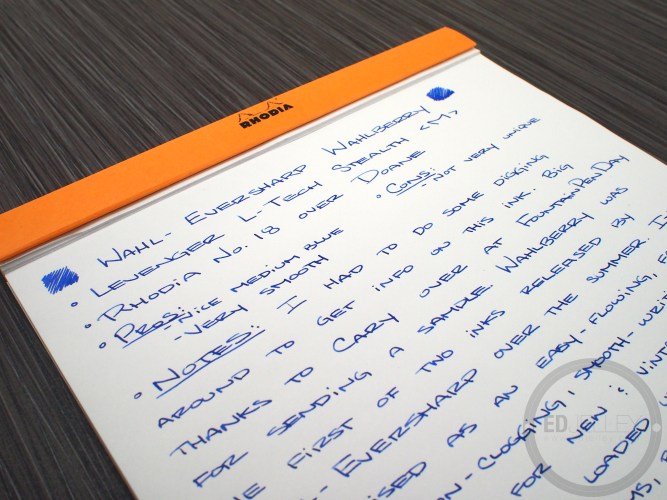 RHODIA
WAHL-EVERSHARP WAHLBERRY
• LEVENGER L-TECH STEALTH <M>
• RHODIA NO. 18 OVER DOANE
• PROS:
- NICE MEDIUM BLUE
- VERY SMOOTH
• CONS:
- NOT VERY UNIQUE
• NOTES: I HAD TO DO SOME DIGGING
AROUND TO GET INFO ON THIS INK. BIG
THANKS TO CARY OVER AT FOUNTAINPENDAY
FOR SENDING A SAMPLE. WAHLBERRY WAS
FIRST OF TWO INKS RELEASED BY
EVERSHARP OVER THE SUMMER. I
AS AN EASY-FLOWING,
CLOGGING, SMOOTH-
FOR NEW
LOADED
ED